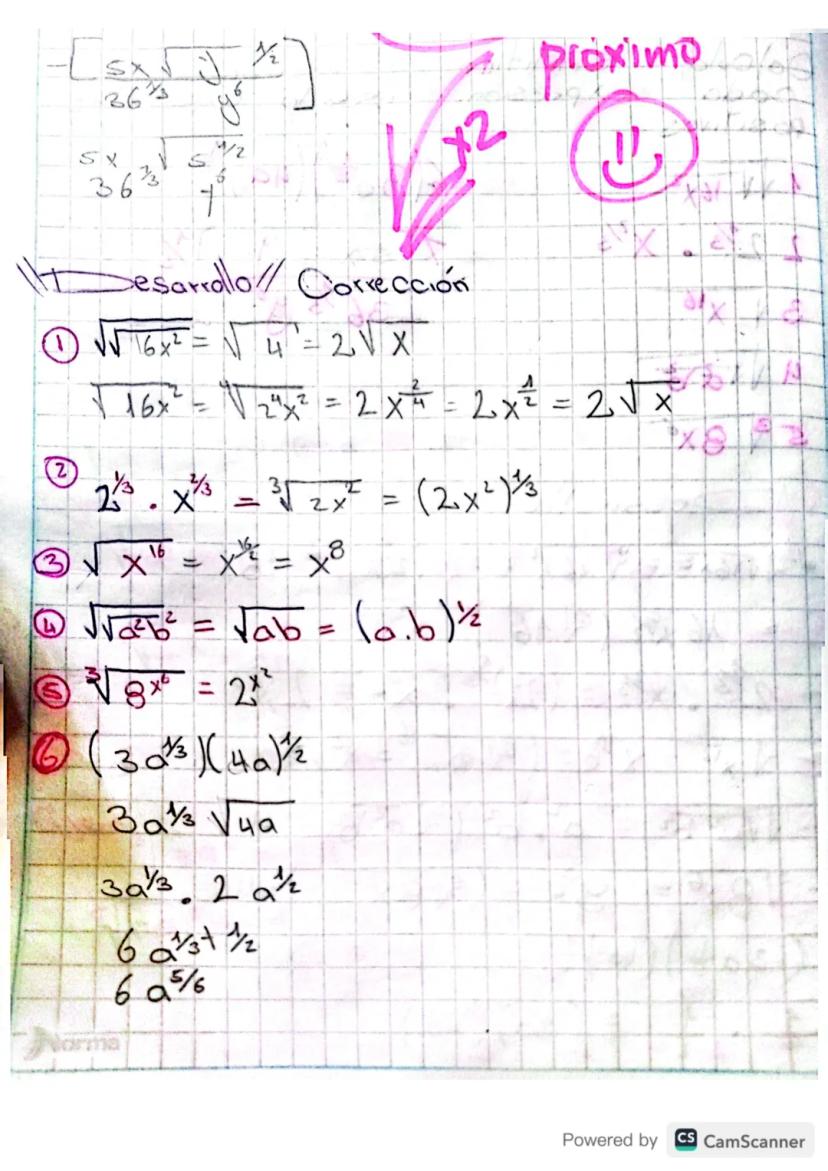 -[5x√y^1/2 / 36^2/3 y^6]
próximo
x2
5x √5^1/2
36^2/3 y^6
\\Desarrollo// Corrección
① √√16x² = √4 = 2√x
√16x² = ⁴√2⁴x² = 2x^2/4 = 2x^1/2 = 2√x
②
2^1/3 . x^2/3 = ³√2x² = (2x²)^1/3
③ √x^16 = x^16/2 = x^8
④ √√a²b² = √ab = (a.b)^1/2
⑤ ³√8^x^6 = 2^x^2
⑥ (3a^1/3)(4a)^1/2
3a^1/3 √4a
3a^1/3 . 2a^1/2
6a^1/3+1/2
6a^5/6
Norma
Powered by CS CamScanner